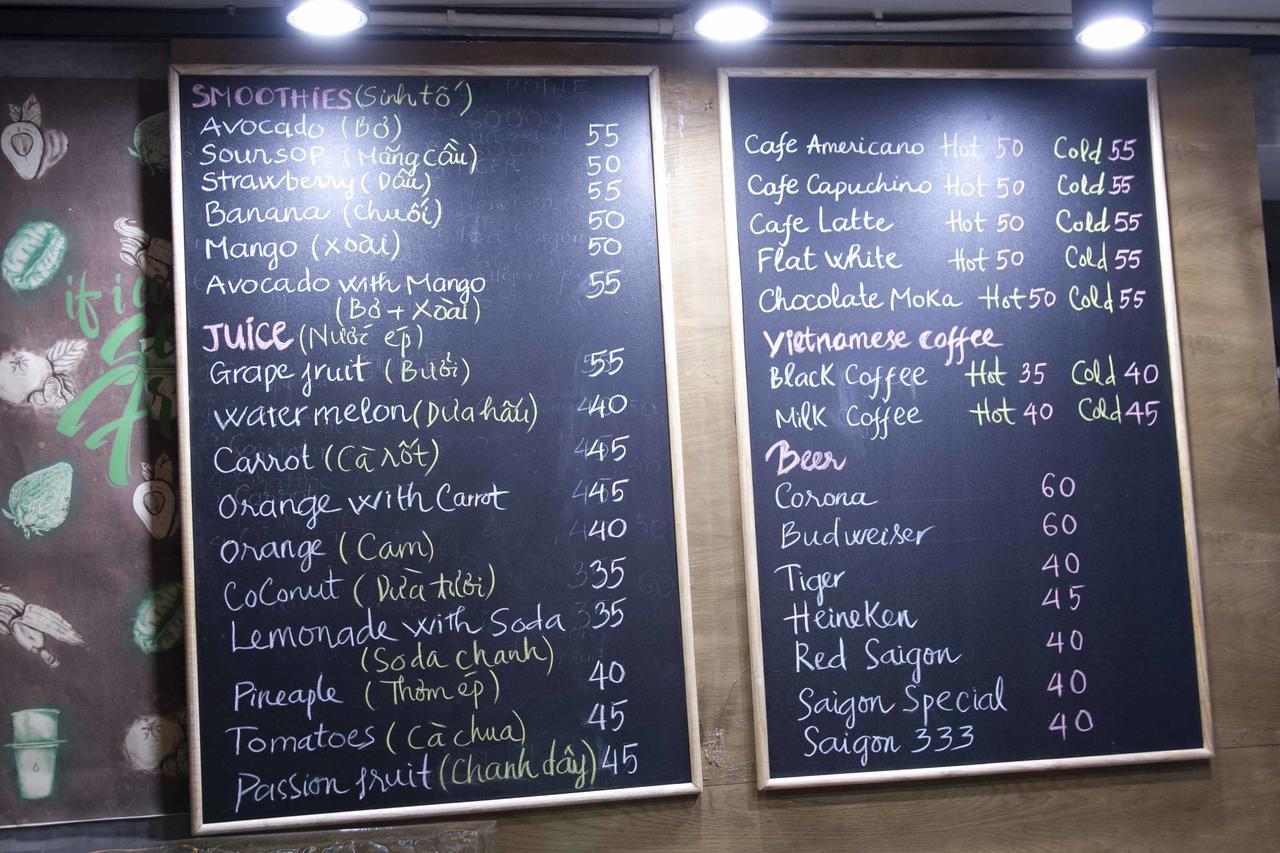 SMOOTHIES (Sinh tố)
Avocado (Bơ) 55
Soursop (Mãng cầu) 50
Strawberry (Dâu) 55
Banana (chuối) 50
Mango (xoài) 50
Avocado with Mango 55
(Bơ + Xoài)
JUICE (Nước ép)
Grape fruit (Bưởi) 55
Water melon (Dưa hấu) 40
Carrot (Cà rốt) 45
Orange with Carrot 45
Orange (Cam) 40
CoConut (Dừa tươi) 35
Lemonade with Soda 35
(Soda chanh)
Pineaple (Thơm ép) 40
Tomatoes (Cà chua) 45
Passion fruit (Chanh dây) 45
Cafe Americano Hot 50 Cold 55
Cafe Capuchino Hot 50 Cold 55
Cafe Latte Hot 50 Cold 55
Flat white Hot 50 Cold 55
Chocolate Moka Hot 50 Cold 55
Vietnamese coffee
Black Coffee Hot 35 Cold 40
Milk Coffee Hot 40 Cold 45
Beer
Corona 60
Budweiser 60
Tiger 40
Heineken 45
Red Saigon 40
Saigon Special 40
Saigon 333 40
if i